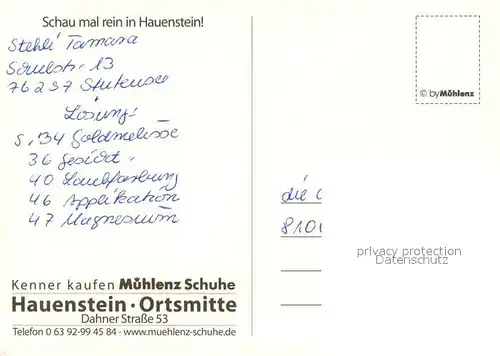 Schau mal rein in Hauenstein!
Stehli Tamara
Schulstr. 13
76297 Stutensee
Lösung:
S. 34 Goldmelisse
36 Gesicht
40 Laubfärbung
46 Applikation
47 Magnesium
Kenner kaufen Mühlenz Schuhe
Hauenstein · Ortsmitte
Dahner Straße 53
Telefon 0 63 92-99 45 84 · www.muehlenz-schuhe.de
© by Mühlenz
die
810
privacy protection
Datenschutz